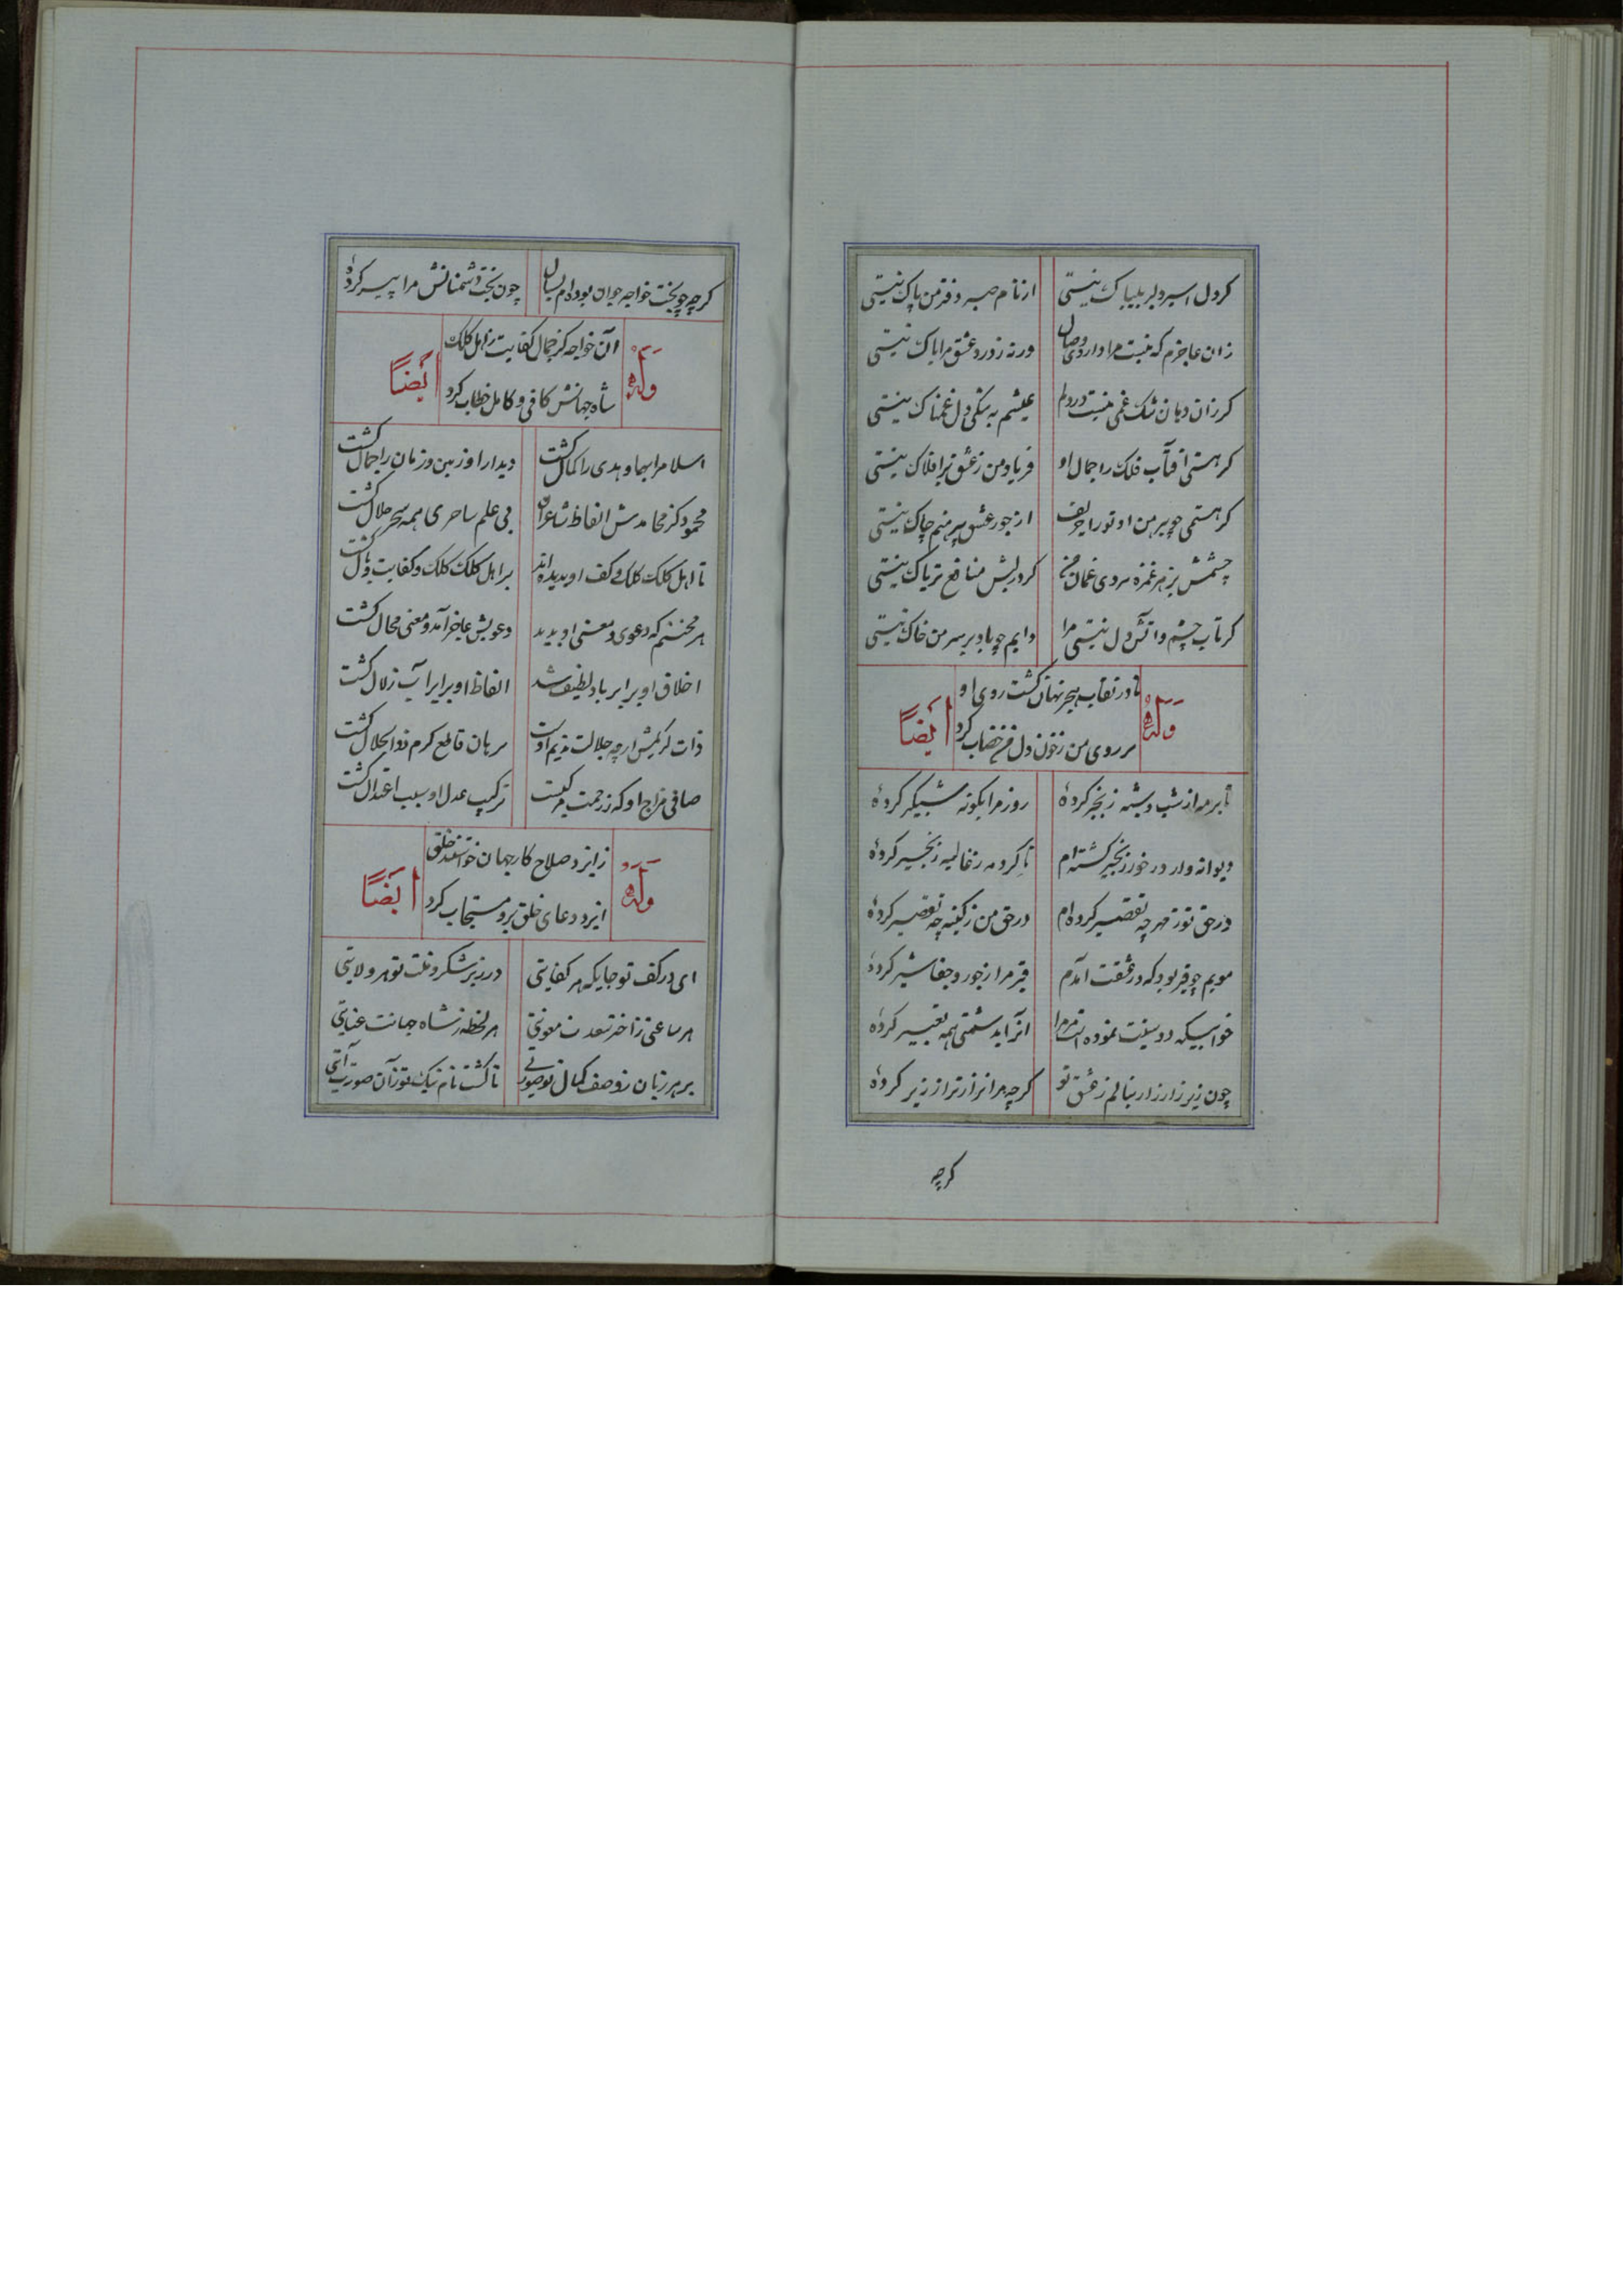 کر دل اسیر دلبر بیباک نیستی از نام صبر دفتر من پاک نیستی
زان عاجزم که نیست مرا داروی وصال ورنه ز درد عشق مرا باک نیستی
کر زان دهان تنک غمی نیست در دلم عیشم به تنکی دل غمناک نیستی
کر هستی افتاب فلک را جمال او فریاد من ز عشق بر افلاک نیستی
کر هستمی چو پیرهن او تو را حریف از جور عشق پیرهنم چاک نیستی
چشمش بزهر غمزه سر وی غمان من کر در لبش منافع تریاک نیستی
کر تاب چشم و اتش دل نیستی مرا دایم چو باد بر سر من خاک نیستی
وله
تا در نقاب هجر نهان کشت روی او
بر روی من ز خون دل من خضاب کرد
ایضاً
تا بر مه از شب دسته زنجیر کردهٔ روز مرا بکونه شبکیر کردهٔ
دیوانه وار در خور زنجیر کشته‌ام تا کرد مه ز غالیه زنجیر کردهٔ
در حق تو ز مهر چه تقصیر کرده‌ام در حق من ز کینه چه تقصیر کردهٔ
مویم چو قیر بود که در عشقت آمدم قیر مرا ز جور و جفا شیر کردهٔ
خوابیکه دوستیت نموده است مر مرا آنرا بدشمنی همه تعبیر کردهٔ
چون زیر زار زار بنالم ز عشق تو کرچه مرا نزارتر از زیر کردهٔ
کرچه
کرچه چو بخت خواجه جوان بوده‌ام بسال چون بخت دشمنانش مرا پیر کردهٔ
وله
آن خواجه کز جمال کفایت ز اهل کلک
شاه جهانش کافی و کامل خطاب کرد
ایضاً
اسلام را بها و هدی را کمال کشت دیدار او زمین و زمان را جمال کشت
محمود کز محامدش الفاظ شاعران بی علم ساحری همه سحر حلال کشت
تا اهل کلک کلک و کف او بدیده‌اند بر اهل کلک کلک و کفایت وبال کشت
هر محتشم که دعوی و معنی او بدید دعویش عاجز آمد و معنی محال کشت
اخلاق او برابر باد لطیف شد الفاظ او برابر آب زلال کشت
ذات کریمش ارچه جلالت ندیم اوست برهان قاطع کرم ذوالجلال کشت
صافی مزاج او که ز رحمت مرکبست ترکیب عدل او سبب اعتدال کشت
وله
ز ایزد صلاح کار جهان خواستند خلق
ایزد دعای خلق برو مستجاب کرد
ایضاً
ای در کف تو جایکه هر کفایتی در زیر شکر و منت تو هر ولایتی
هر ساعتی ز اختر سعدت معونتی هر لحظه ز شاه جهانت عنایتی
بر هر زبان ز وصف کمال تو صورتی تا کشت نام نیک تو زان صورت آیتی